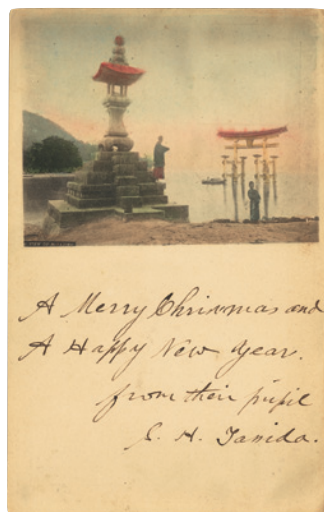 A Merry Chrismas and
A Happy New Year.
from their pupil
S. H. Tanida.